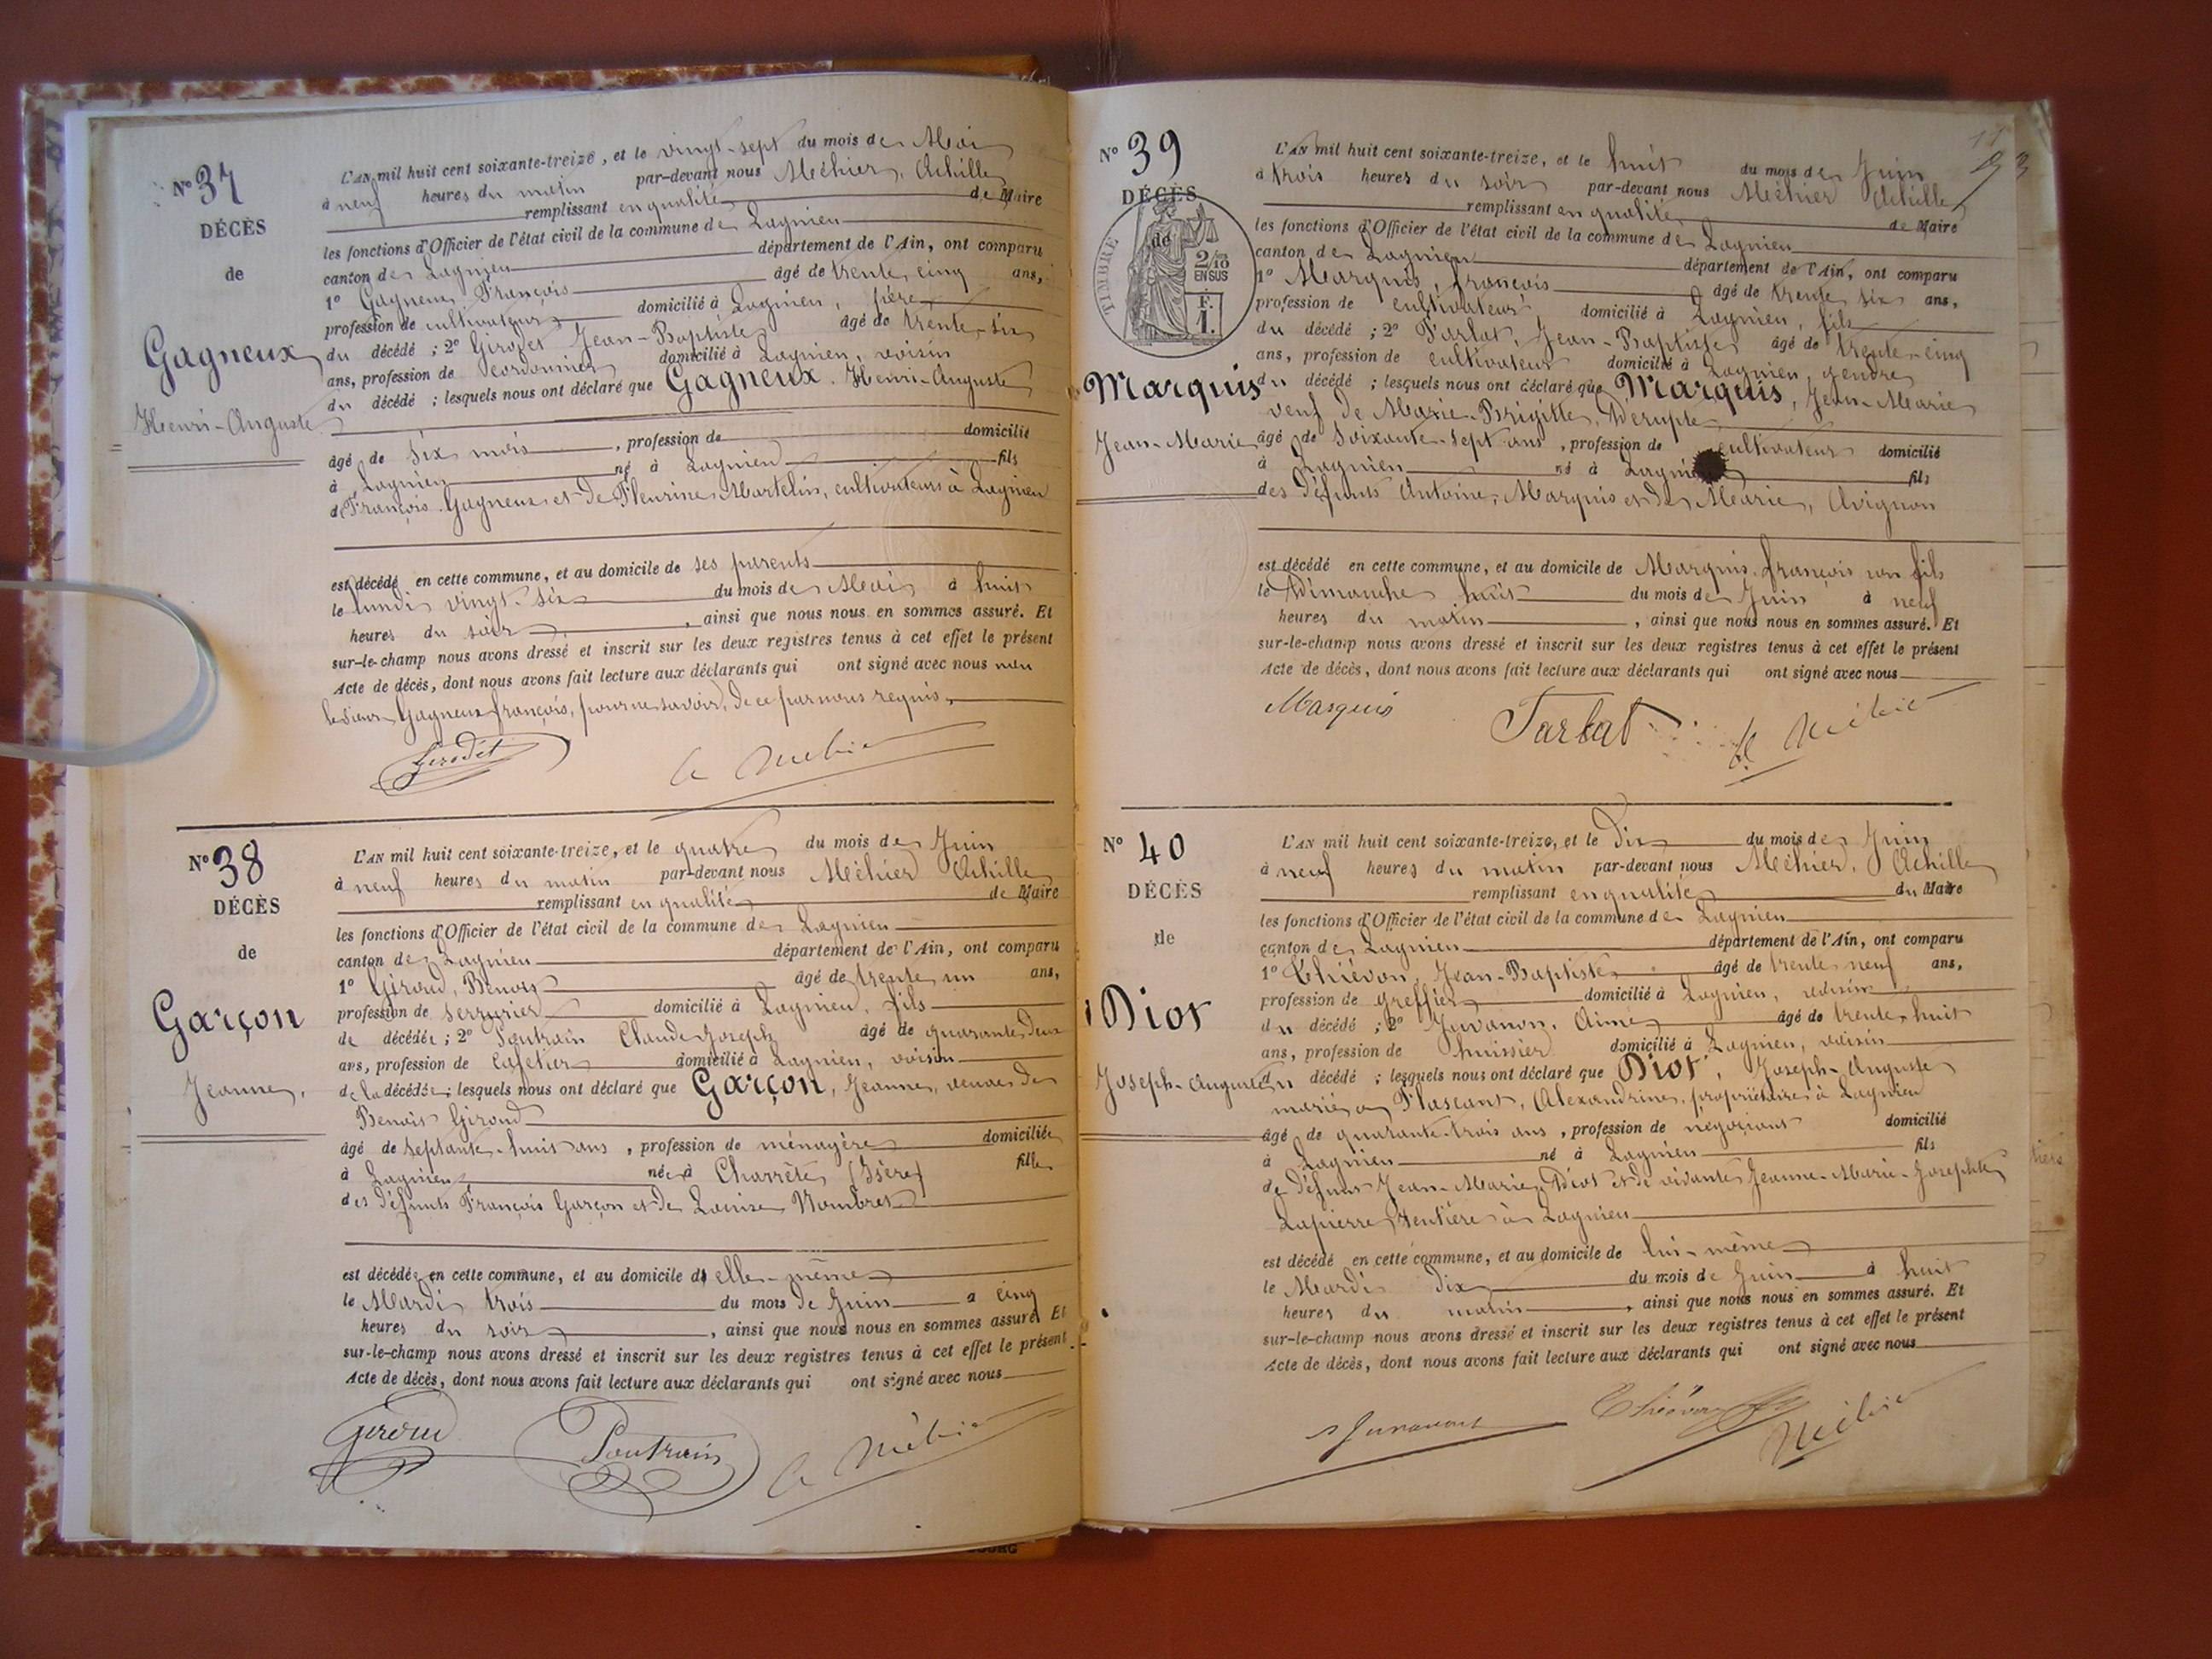 N° 37
DÉCÈS
de
Gagneux
Henri-Auguste
L'AN mil huit cent soixante-treize, et le vingt-sept du mois de Mai
à neuf heures du matin par-devant nous Méhier, Achille
remplissant en qualité de Maire
les fonctions d'Officier de l'état civil de la commune de Lagnieu
canton de Lagnieu département de l'Ain, ont comparu
1° Gagneux François âgé de trente cinq ans,
profession de cultivateur domicilié à Lagnieu, père
du décédé ; 2° Girodet Jean-Baptiste âgé de trente-six
ans, profession de cordonnier domicilié à Lagnieu, voisin
du décédé ; lesquels nous ont déclaré que Gagneux, Henri-Auguste
âgé de six mois, profession de domicilié
à Lagnieu né à Lagnieu fils
de François Gagneux et de Fleurine Martelin, cultivateurs à Lagnieu
est décédé en cette commune, et au domicile de ses parents
le lundi vingt-six du mois de Mai à huit
heures du soir, ainsi que nous nous en sommes assuré. Et
sur-le-champ nous avons dressé et inscrit sur les deux registres tenus à cet effet le présent
Acte de décès, dont nous avons fait lecture aux déclarants qui ont signé avec nous non
le sieur Gagneux françois, pour ne savoir, de ce par nous requis.
Girodet
A Méhier
N° 38
DÉCÈS
de
Garçon
Jeanne,
L'AN mil huit cent soixante-treize, et le quatre du mois de Juin
à neuf heures du matin par-devant nous Méhier Achille
remplissant en qualité de Maire
les fonctions d'Officier de l'état civil de la commune de Lagnieu
canton de Lagnieu département de l'Ain, ont comparu
1° Giroud, Benoit âgé de trente un ans,
profession de serrurier domicilié à Lagnieu, fils
de décédée ; 2° Poutrain Claude Joseph âgé de quarante deux
ans, profession de cafetier domicilié à Lagnieu, voisin
de la décédée ; lesquels nous ont déclaré que Garçon, Jeanne, veuve de
Benoit Giroud
âgé de septante-huit ans, profession de ménagère domiciliée
à Lagnieu née à Charrête (Isère) fille
des défunts François Garçon et de Louise Nombret
est décédée en cette commune, et au domicile d' elle-même
le Mardi trois du mois de Juin à cinq
heures du soir, ainsi que nous nous en sommes assuré. Et
sur-le-champ nous avons dressé et inscrit sur les deux registres tenus à cet effet le présent
Acte de décès, dont nous avons fait lecture aux déclarants qui ont signé avec nous
Giroud
Poutrain
A Méhier
N° 39
DÉCÈS
de
TIMBRE
2/10
EN SUS
F.
1.
Marquis
Jean-Marie
L'AN mil huit cent soixante-treize, et le huit du mois de Juin
à trois heures du soir par-devant nous Méhier Achille
remplissant en qualité de Maire
les fonctions d'Officier de l'état civil de la commune de Lagnieu
canton de Lagnieu département de l'Ain, ont comparu
1° Marquis, françois âgé de trente six ans,
profession de cultivateur domicilié à Lagnieu, fils
du décédé ; 2° Tarlat, Jean-Baptiste âgé de trente-cinq
ans, profession de cultivateur domicilié à Lagnieu, gendre
du décédé ; lesquels nous ont déclaré que Marquis, Jean-Marie
veuf de Marie-Brigitte,
âgé de soixante-sept ans, profession de cultivateur domicilié
à Lagnieu né à Lagnieu fils
des défunts Antoine, Marquis et de Marie, Avignon
est décédé en cette commune, et au domicile de Marquis, françois son fils
le Dimanche huit du mois de Juin à neuf
heures du matin, ainsi que nous nous en sommes assuré. Et
sur-le-champ nous avons dressé et inscrit sur les deux registres tenus à cet effet le présent
Acte de décès, dont nous avons fait lecture aux déclarants qui ont signé avec nous
Marquis
Tarlat
A Méhier
N° 40
DÉCÈS
de
Diot
Joseph-Auguste
L'AN mil huit cent soixante-treize, et le Dix du mois de Juin
à neuf heures du matin par-devant nous Méhier, Achille
remplissant en qualité du Maire
les fonctions d'Officier de l'état civil de la commune de Lagnieu
canton de Lagnieu département de l'Ain, ont comparu
1° Thiévon, Jean-Baptiste âgé de trente neuf ans,
profession de greffier domicilié à Lagnieu, voisin
du décédé ; 2° Juvanon, Aimé âgé de trente-huit
ans, profession de huissier domicilié à Lagnieu, voisin
du décédé ; lesquels nous ont déclaré que Diot, Joseph-Auguste
marié à Alexandrine, propriétaire à Lagnieu
âgé de quarante-trois ans, profession de négociant domicilié
à Lagnieu né à Lagnieu fils
de défunt Jean-Marie, Diot et de vivante Jeanne-Marie-Josephte
Lapierre, rentière à Lagnieu
est décédé en cette commune, et au domicile de lui-même
le Mardi dix du mois de Juin à huit
heures du matin, ainsi que nous nous en sommes assuré. Et
sur-le-champ nous avons dressé et inscrit sur les deux registres tenus à cet effet le présent
Acte de décès, dont nous avons fait lecture aux déclarants qui ont signé avec nous
Juvanon
Thiévon
Méhier